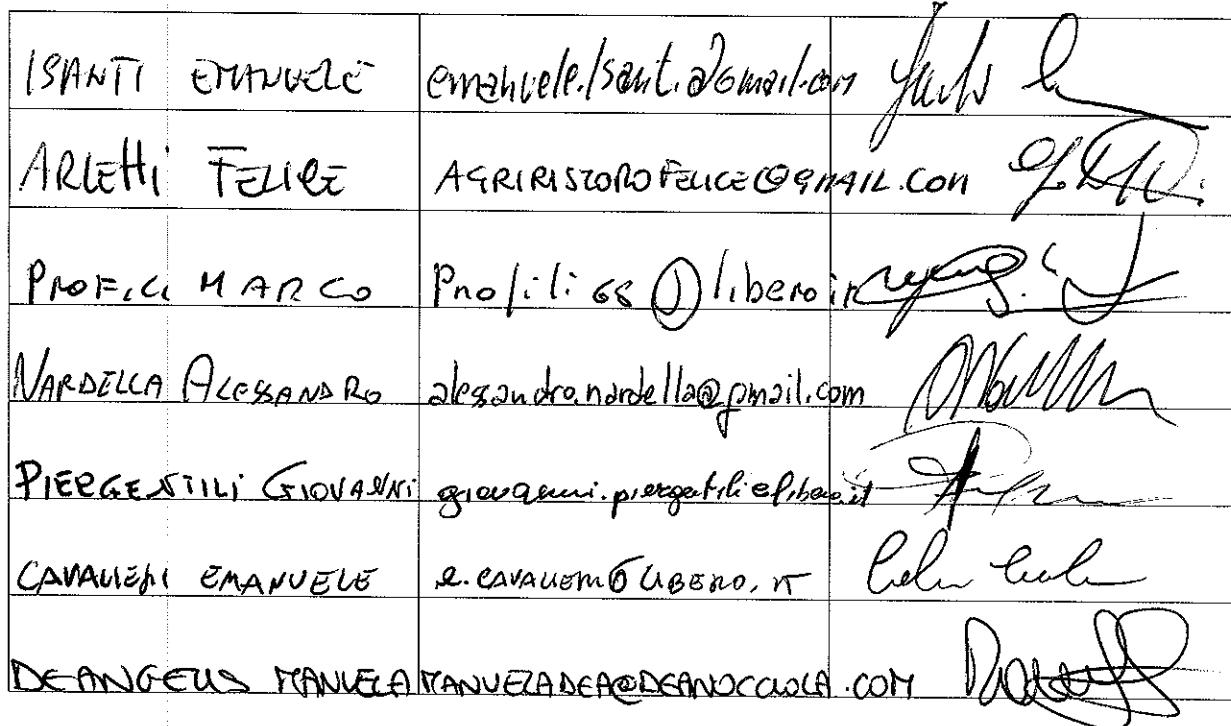 ISANTI EMANUELE emanuele.isanti@gmail.com
ARLETTI FELICE AGRIRISTOROFELICE@GMAIL.COM
PROFILI MARCO Profili 68 @ libero it
NARDELLA ALESSANDRO alessandro.nardella@gmail.com
PIERGENTILI GIOVANNI giovanni.piergentili@libero.it
CAVALIERI EMANUELE e.CAVALIERI@LIBERO.IT
DEANGELIS MANUELA MANUELADEA@DEANOCCIOLA.COM